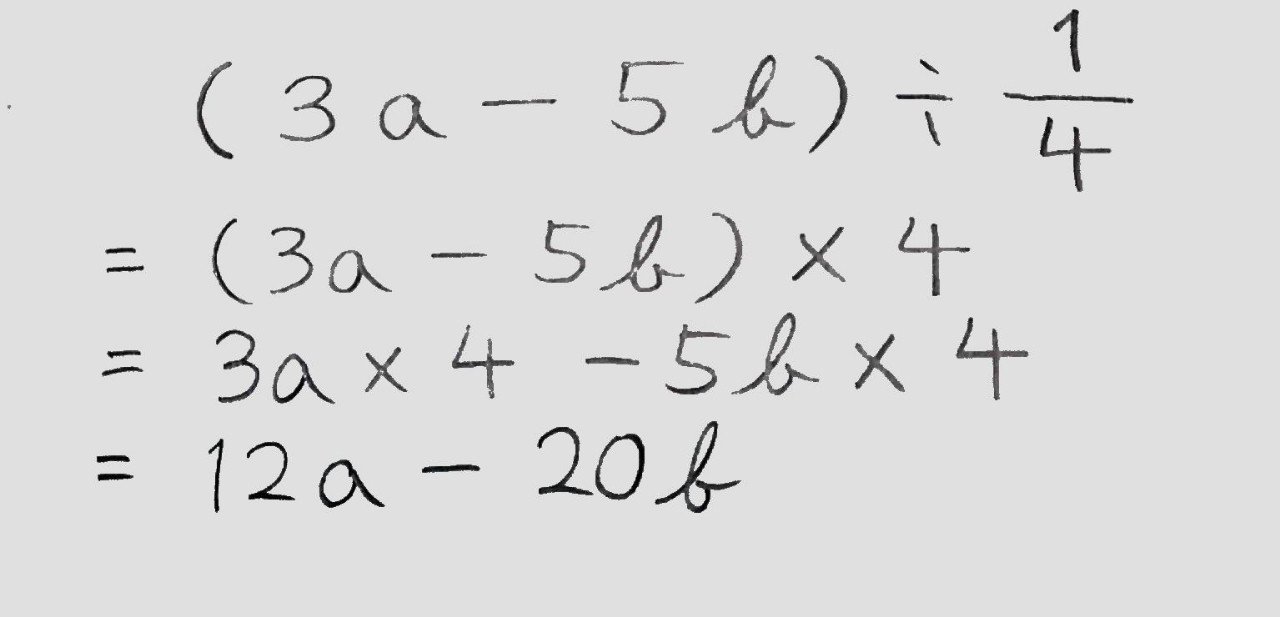 (3a - 5b) ÷ 1/4
= (3a - 5b) × 4
= 3a × 4 - 5b × 4
= 12a - 20b